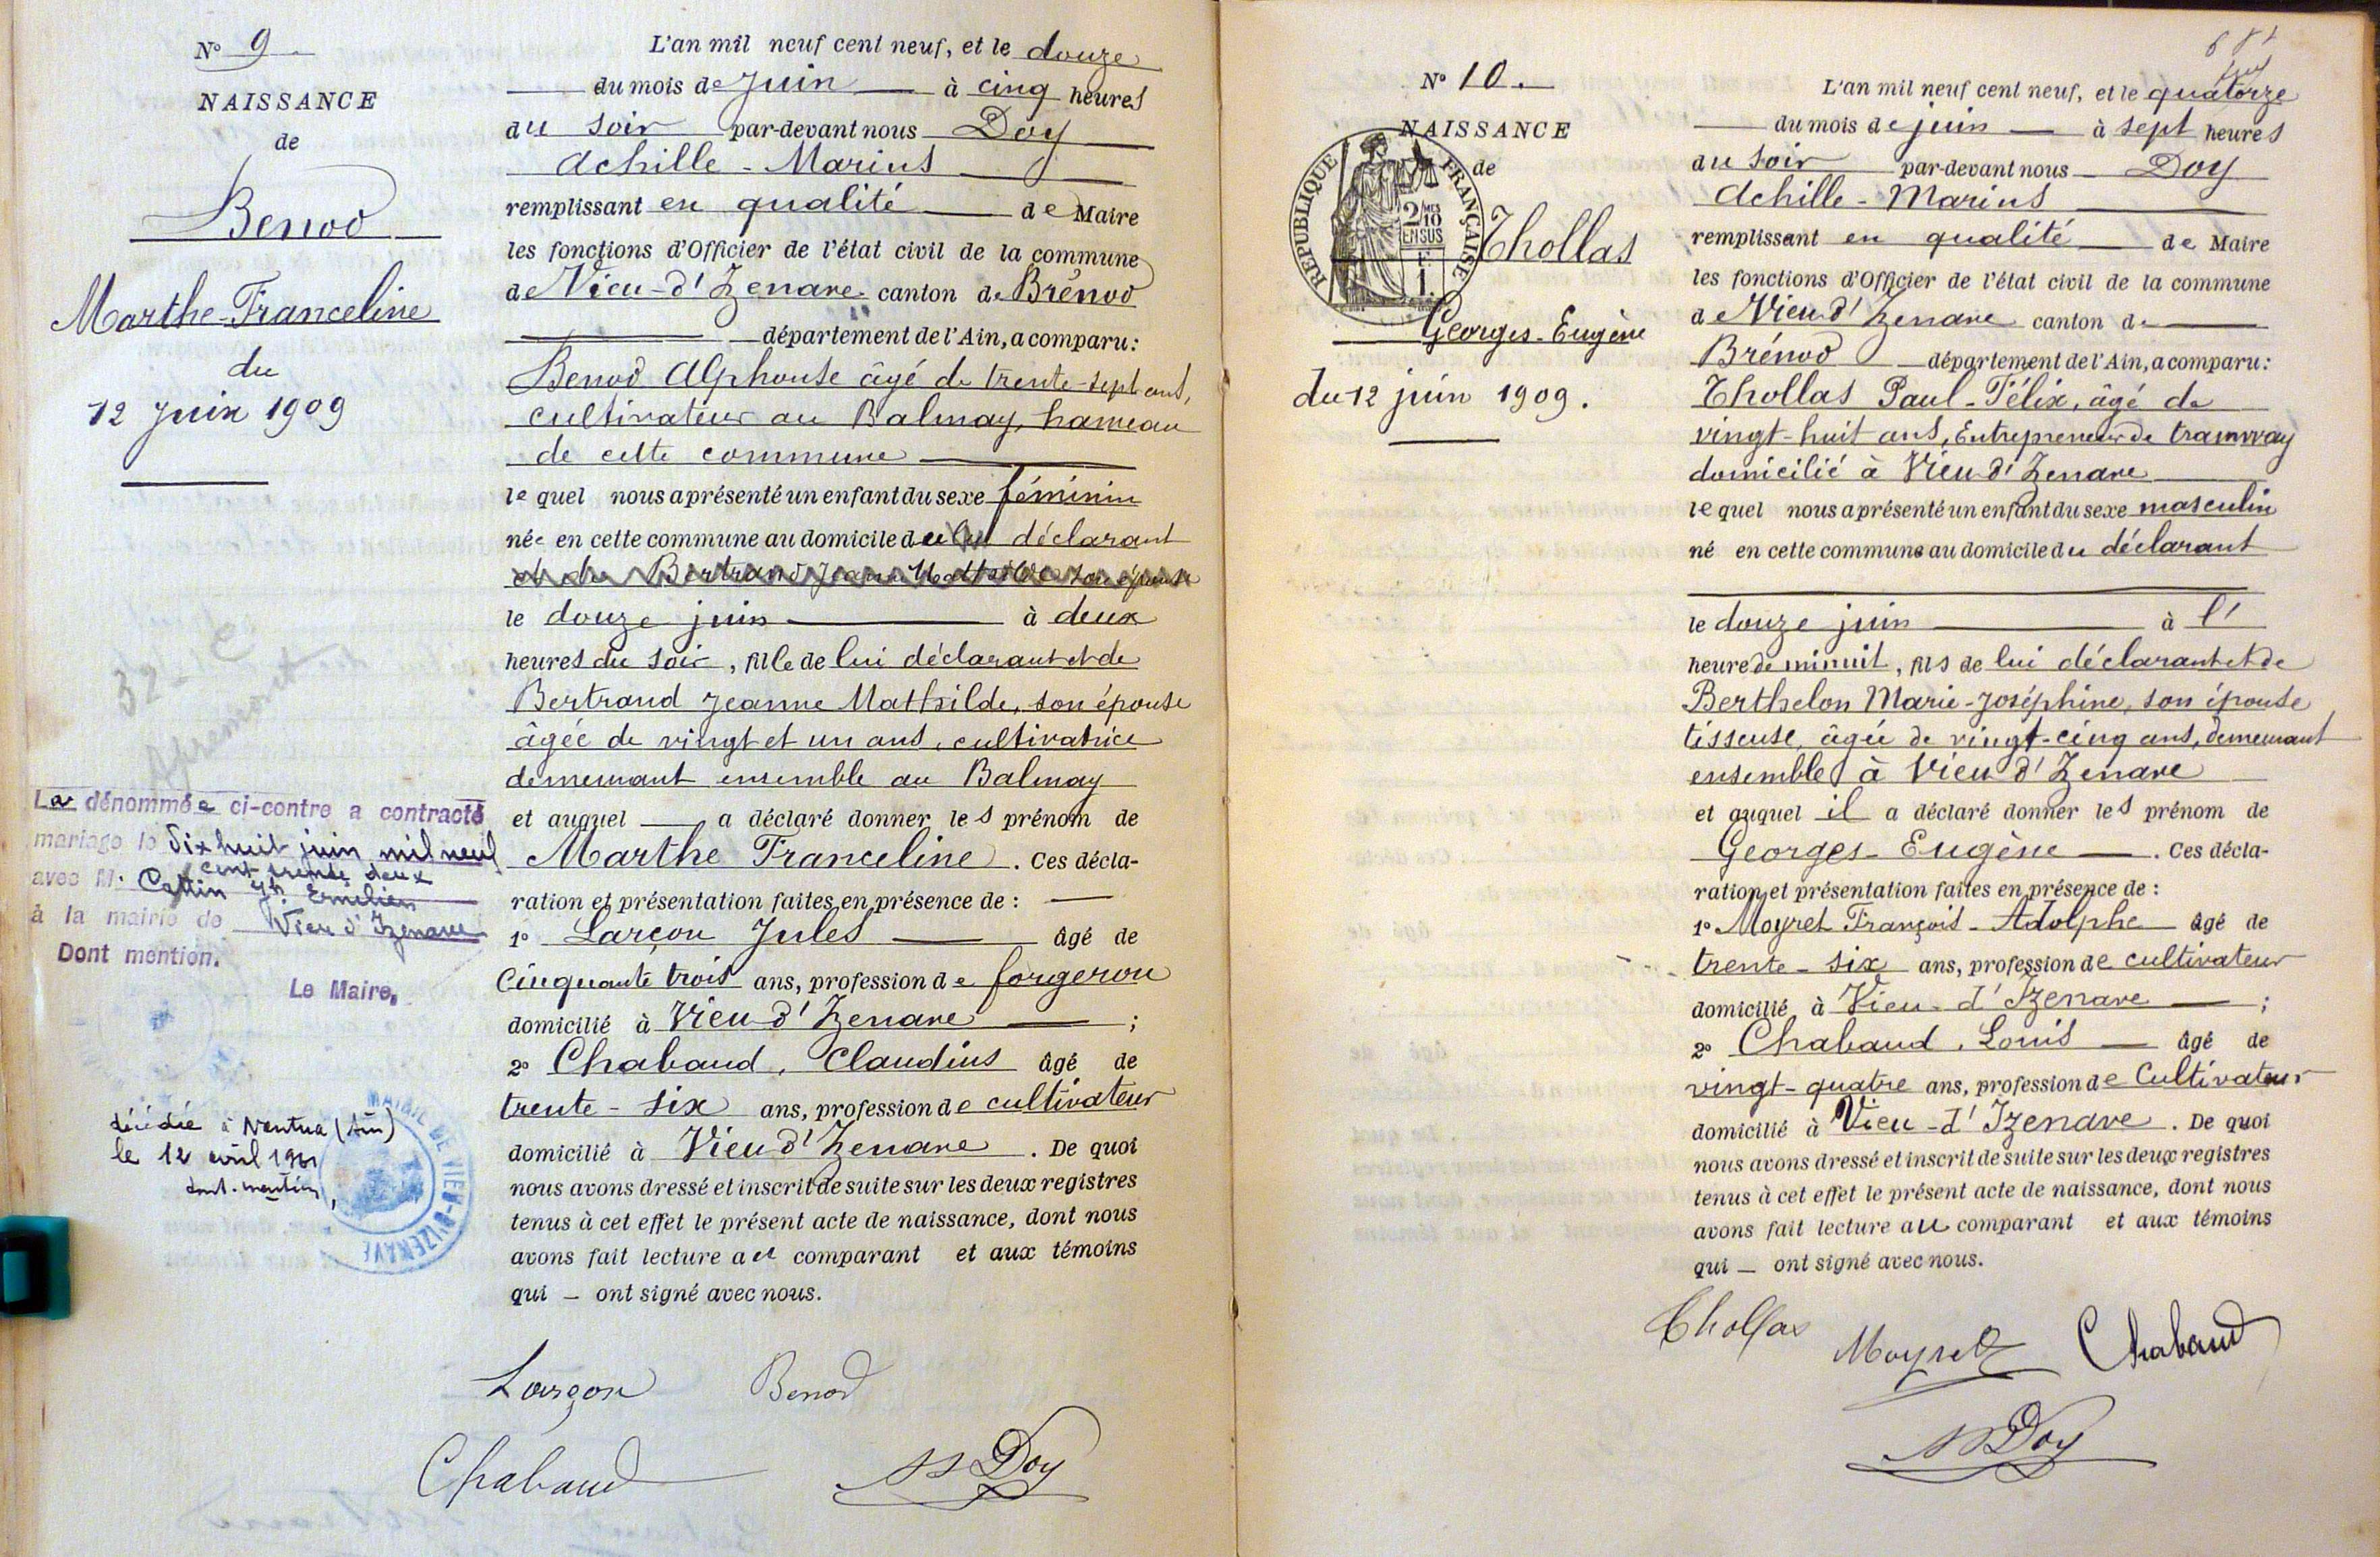 N° 9
NAISSANCE
de
Benod
Marthe-Franceline
du
12 Juin 1909
La dénommée ci-contre a contracté
mariage le dix huit juin mil neuf
cent trente deux
avec M. Cattin Jh Emilien
à la mairie de Vieu d'Izenave
Dont mention.
Le Maire,
décédée à Nantua (Ain)
le 12 avril 1961
dont mention,
MAIRIE DE VIEU-D'IZENAVE
L'an mil neuf cent neuf, et le douze
du mois de Juin à cinq heures
du soir par-devant nous Doy
Achille - Marius
remplissant en qualité de Maire
les fonctions d'Officier de l'état civil de la commune
de Vieu-d'Izenave canton de Brénod
département de l'Ain, a comparu:
Benod Alphonse âgé de trente-sept ans,
cultivateur au Balmay, hameau
de cette commune
le quel nous a présenté un enfant du sexe féminin
née en cette commune au domicile du déclarant
et de Bertrand Jeanne Mathilde son épouse
le douze juin à deux
heures du soir, fille de lui déclarant et de
Bertrand Jeanne Mathilde, son épouse
âgée de vingt et un ans, cultivatrice
demeurant ensemble au Balmay
et auquel a déclaré donner les prénom de
Marthe Franceline. Ces décla-
ration et présentation faites en présence de :
1° Larçon Jules âgé de
Cinquante trois ans, profession de forgeron
domicilié à Vieu d'Izenave ;
2° Chabaud, Claudius âgé de
trente - six ans, profession de cultivateur
domicilié à Vieu d'Izenave. De quoi
nous avons dressé et inscrit de suite sur les deux registres
tenus à cet effet le présent acte de naissance, dont nous
avons fait lecture au comparant et aux témoins
qui – ont signé avec nous.
Larçon Benod
Chabaud Doy
N° 10.
NAISSANCE
de
RÉPUBLIQUE FRANÇAISE
2/10 MES
EN SUS
F.
1.
Thollas
Georges-Eugène
du 12 juin 1909.
L'an mil neuf cent neuf, et le quatorze
du mois de juin à sept heures
du soir par-devant nous Doy
Achille-Marius
remplissant en qualité de Maire
les fonctions d'Officier de l'état civil de la commune
de Vieu d'Izenave canton de
Brénod département de l'Ain, a comparu:
Thollas Paul-Félix, âgé de
vingt-huit ans, Entrepreneur de tramway
domicilié à Vieu d'Izenave
le quel nous a présenté un enfant du sexe masculin
né en cette commune au domicile du déclarant
le douze juin à l'
heure de minuit, fils de lui déclarant et de
Berthelon Marie-Joséphine, son épouse
tisseuse, âgée de vingt-cinq ans, demeurant
ensemble à Vieu d'Izenave
et auquel il a déclaré donner les prénom de
Georges-Eugène. Ces décla-
ration et présentation faites en présence de :
1° Moyret François-Adolphe âgé de
trente - six ans, profession de cultivateur
domicilié à Vieu-d'Izenave ;
2° Chabaud, Louis âgé de
vingt-quatre ans, profession de Cultivateur
domicilié à Vieu-d'Izenave. De quoi
nous avons dressé et inscrit de suite sur les deux registres
tenus à cet effet le présent acte de naissance, dont nous
avons fait lecture au comparant et aux témoins
qui – ont signé avec nous.
Thollas Moyret Chabaud
Doy